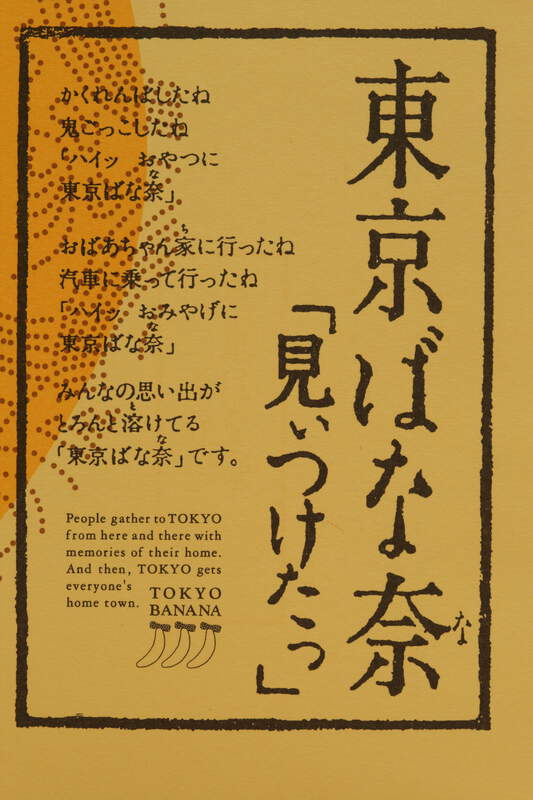 東京ばな奈
な
「見ぃつけたっ」
かくれんぼしたね
鬼ごっこしたね
「ハイッ おやつに
な
東京ばな奈」
ち
おばあちゃん家に行ったね
汽車に乗って行ったね
「ハイッ おみやげに
な
東京ばな奈」
みんなの思い出が
と
とろんと溶けてる
な
「東京ばな奈」です。
People gather to TOKYO
from here and there with
memories of their home.
And then, TOKYO gets
everyone's
home town.
TOKYO
BANANA